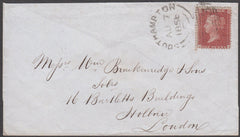 SOUTHAMPTON
AU 7
1856
Messrs Wm Breckenridge & Sons
Solrs
16 Bartletts Buildings
Holborn
London